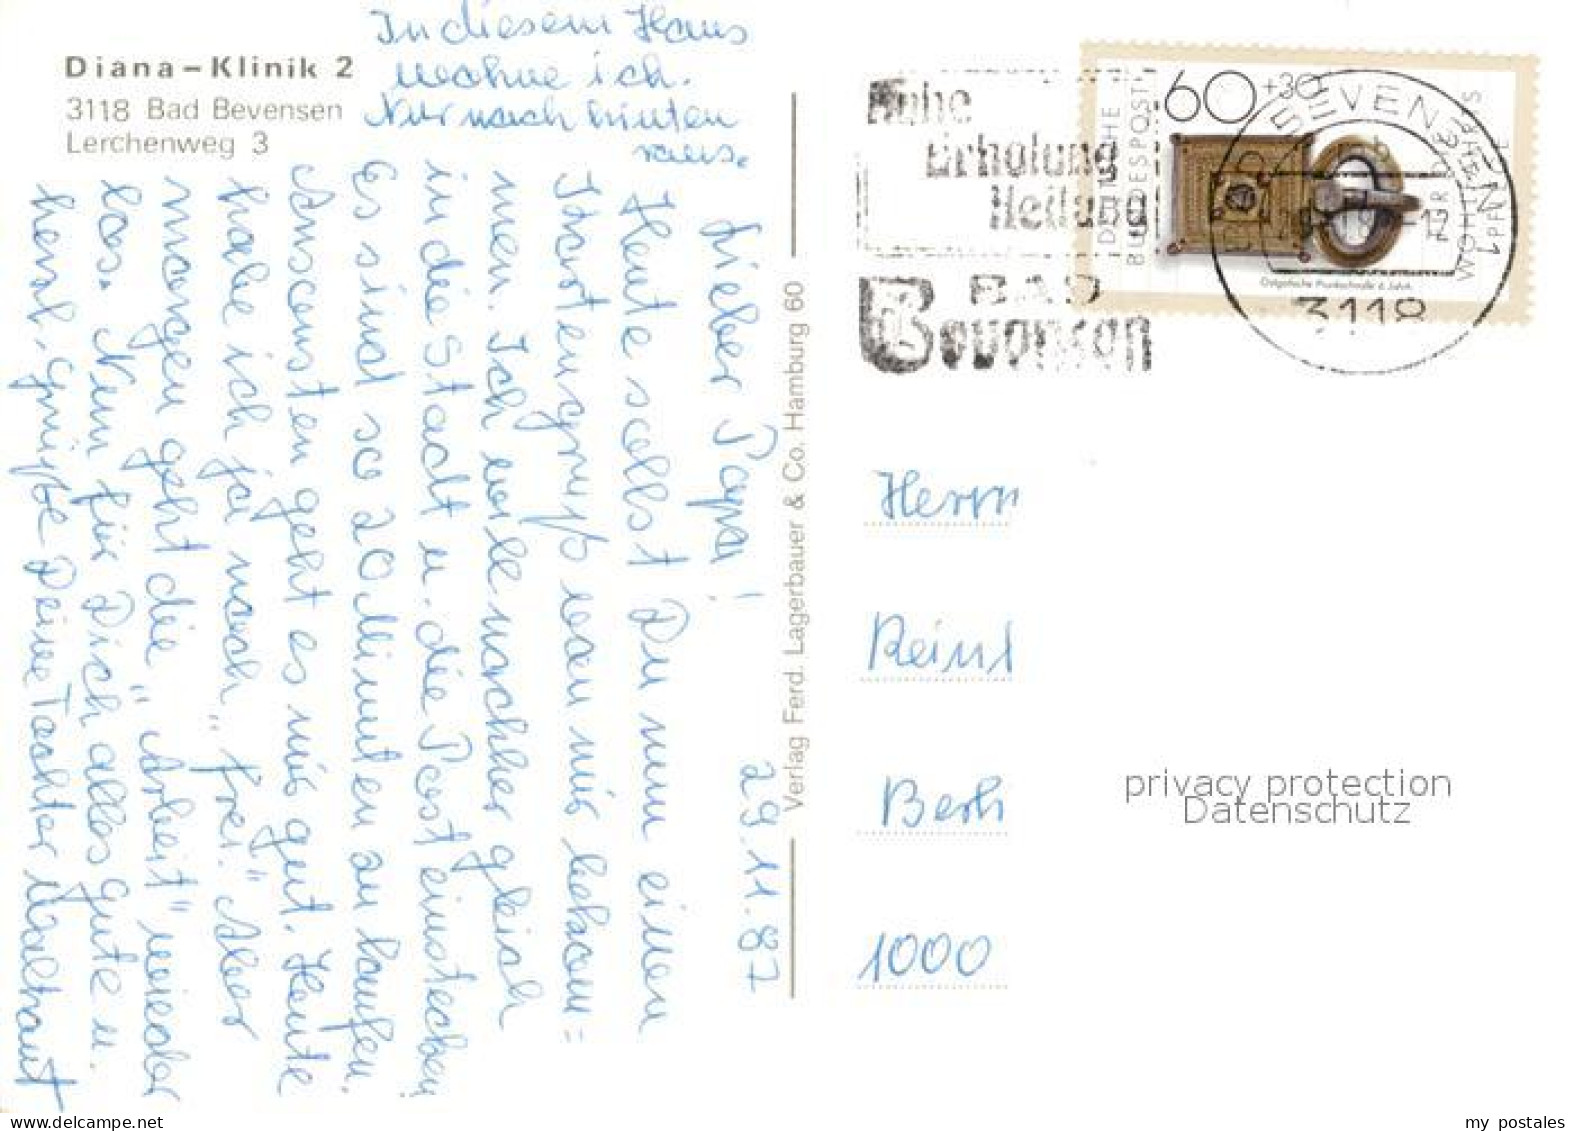 In diesem Haus
wohne ich.
Nur nach hinten
raus.
Diana-Klinik 2
3118 Bad Bevensen
Lerchenweg 3
29.11.87
Lieber Papa!
Heute sollst Du nun einen
Kartengruß von mir bekom=
men. Ich will nachher gleich
in die Stadt u. die Post einstecken.
Es sind so 20 Minuten zu laufen.
Ansonsten geht es mir gut. Heute
habe ich ja noch "frei." Aber
morgen geht die "Arbeit" wieder
los. Nun für Dich alles Gute u.
herzl. Grüße Deine Tochter Waltraut
Verlag Ferd. Lagerbauer & Co. Hamburg 60
Ruhe
Erholung
Heilung
BAD
Bevensen
60+30
DEUTSCHE
BUNDESPOST
Ostgotische Prunkschnalle 6. Jahrh.
BEVENSEN 1
3118
Herrn
Berlin
1000
privacy protection
Datenschutz
my postales